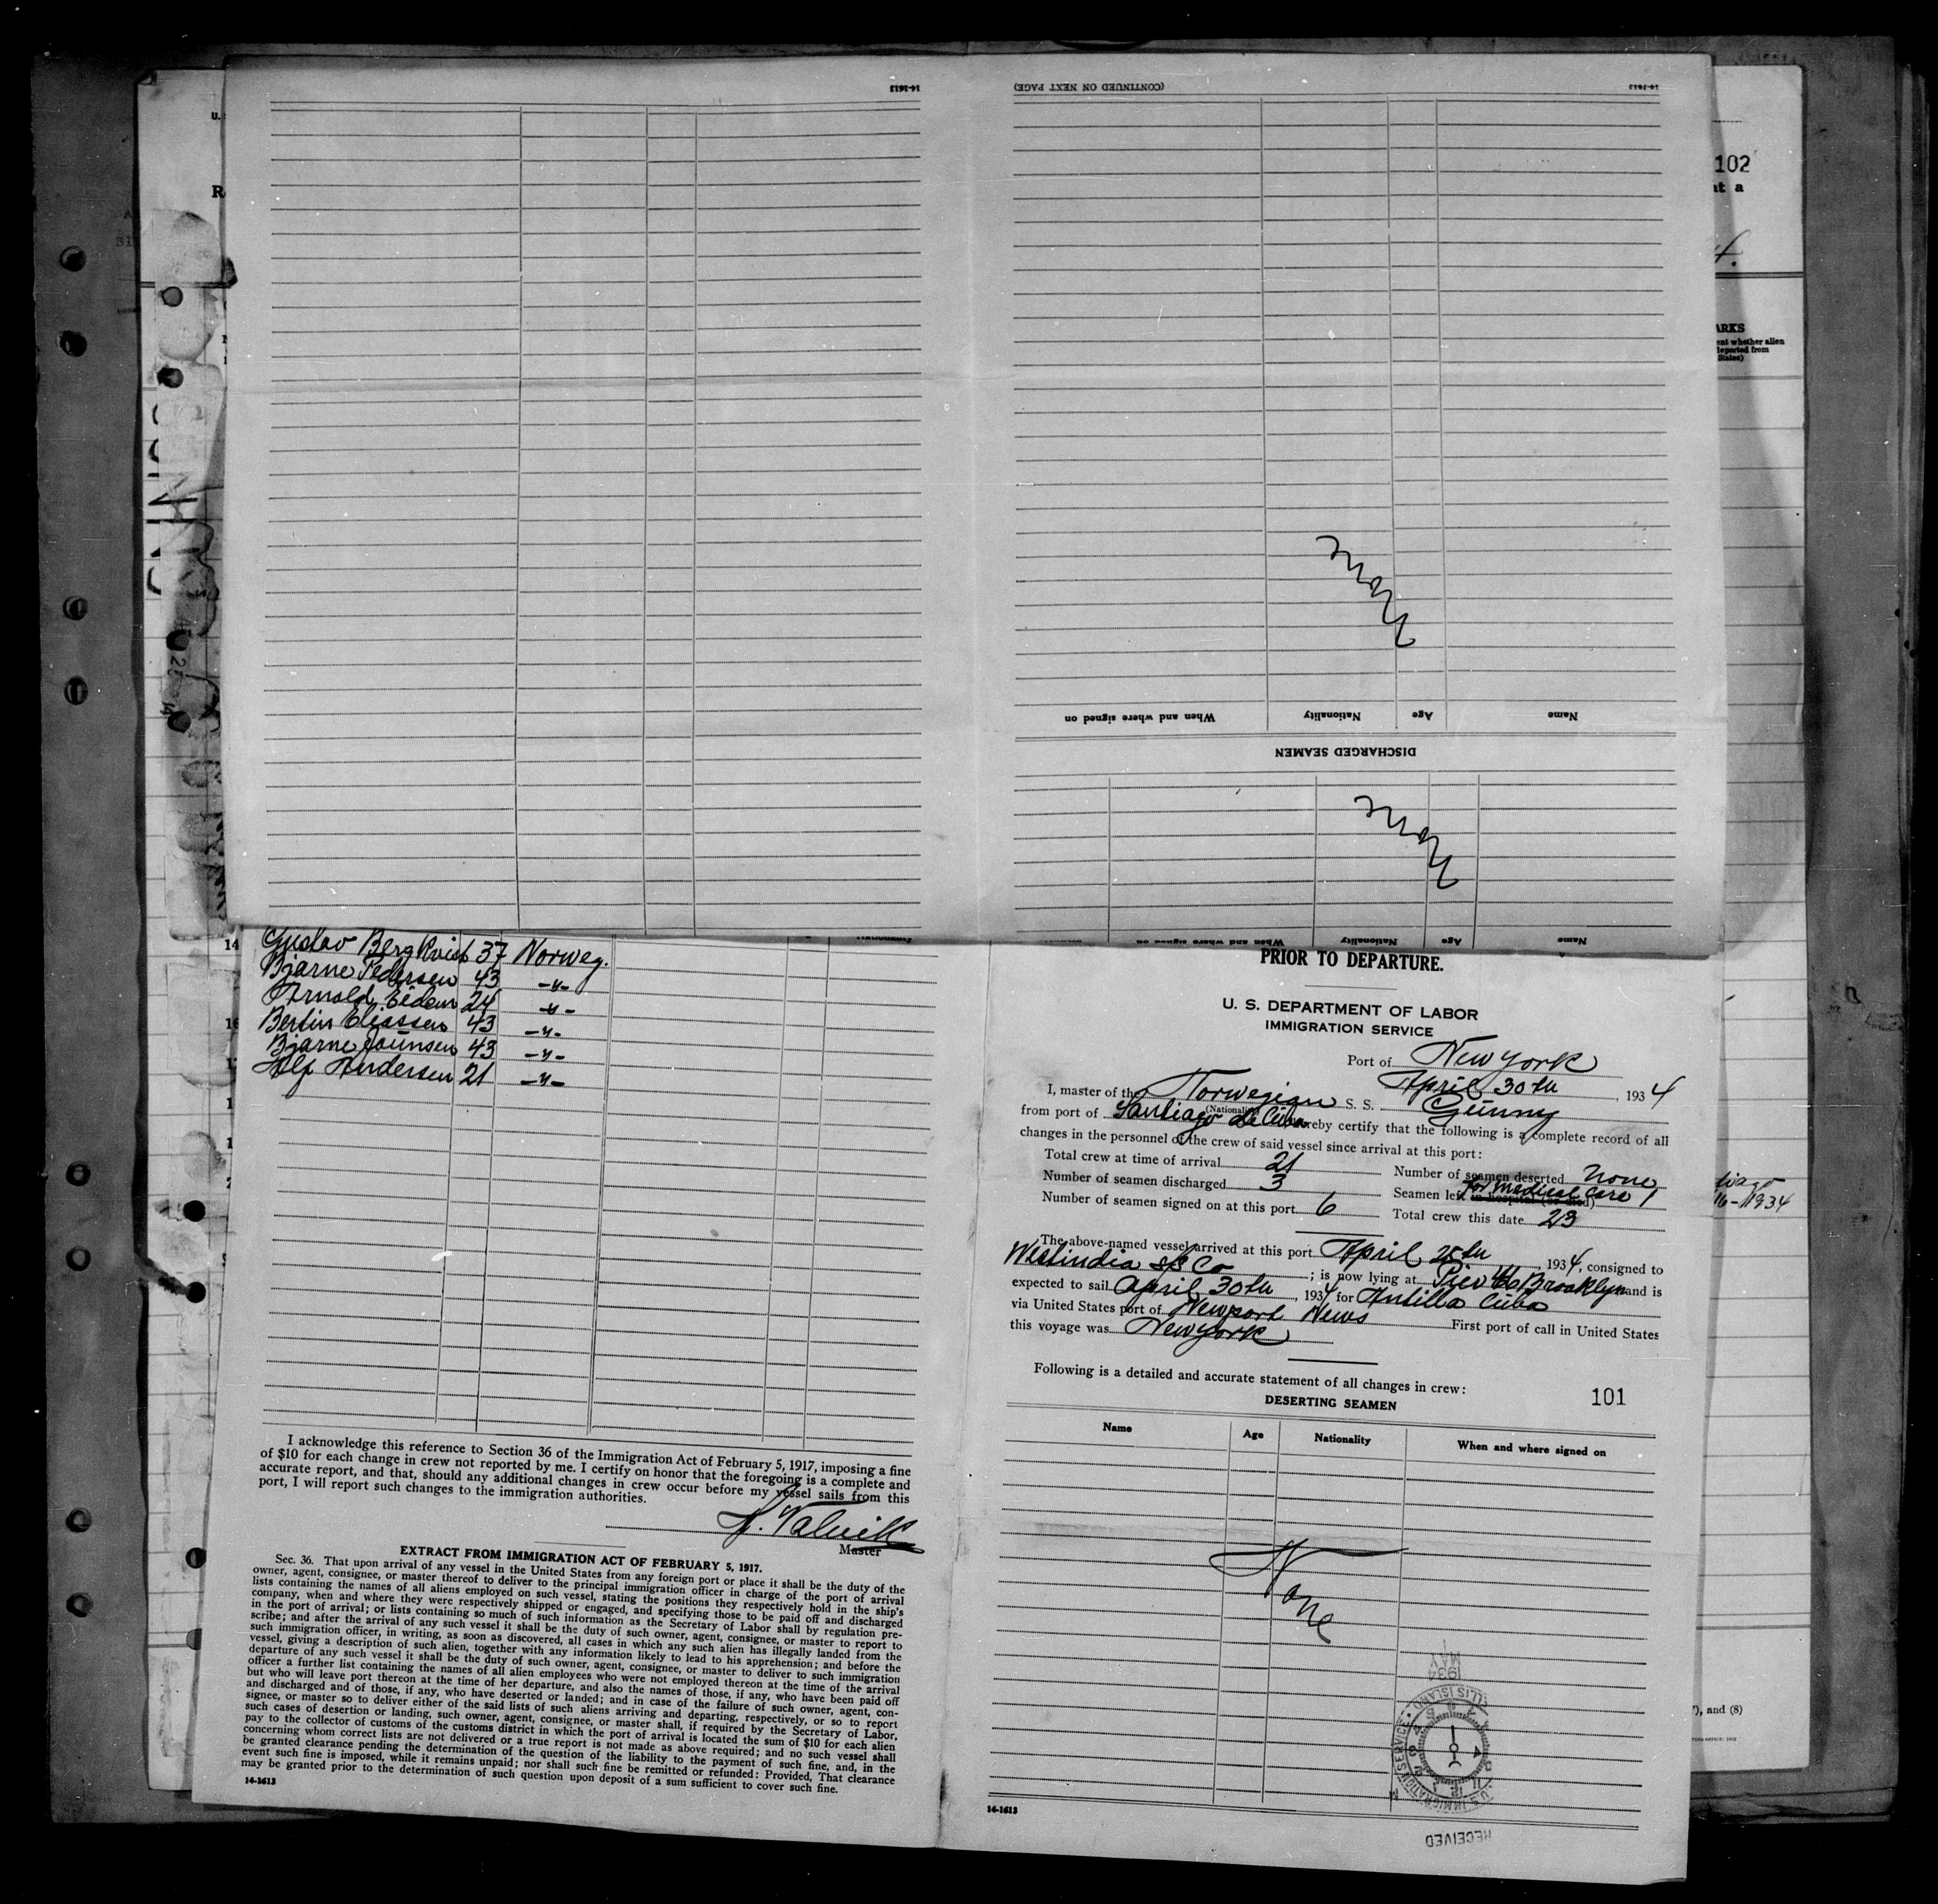 14-1613
(CONTINUED ON NEXT PAGE)
14-1613
U.
R
102
at a
4.
ARKS
ent whether alien
deported from
States)
None
When and where signed on
Nationality
Age
Name
DISCHARGED SEAMEN
None
When and where signed on
Nationality
Age
Name
14 Gustav Bergkvist 37 Norweg.
Bjarne Pedersen 43 -"-
Arnold Eidem 24 -"-
Bertin Eliassen 43 -"-
Bjarne Jounsen 43 -"-
Alf Andersen 21 -"-
I acknowledge this reference to Section 36 of the Immigration Act of February 5, 1917, imposing a fine
of $10 for each change in crew not reported by me. I certify on honor that the foregoing is a complete and
accurate report, and that, should any additional changes in crew occur before my vessel sails from this
port, I will report such changes to the immigration authorities.
Master
EXTRACT FROM IMMIGRATION ACT OF FEBRUARY 5, 1917.
Sec. 36. That upon arrival of any vessel in the United States from any foreign port or place it shall be the duty of the
owner, agent, consignee, or master thereof to deliver to the principal immigration officer in charge of the port of arrival
lists containing the names of all aliens employed on such vessel, stating the positions they respectively hold in the ship's
company, when and where they were respectively shipped or engaged, and specifying those to be paid off and discharged
in the port of arrival; or lists containing so much of such information as the Secretary of Labor shall by regulation pre-
scribe; and after the arrival of any such vessel it shall be the duty of such owner, agent, consignee, or master to report to
such immigration officer, in writing, as soon as discovered, all cases in which any such alien has illegally landed from the
vessel, giving a description of such alien, together with any information likely to lead to his apprehension; and before the
departure of any such vessel it shall be the duty of such owner, agent, consignee, or master to deliver to such immigration
officer a further list containing the names of all alien employees who were not employed thereon at the time of the arrival
but who will leave port thereon at the time of her departure, and also the names of those, if any, who have been paid off
and discharged and of those, if any, who have deserted or landed; and in case of the failure of such owner, agent, con-
signee, or master so to deliver either of the said lists of such aliens arriving and departing, respectively, or so to report
such cases of desertion or landing, such owner, agent, consignee, or master shall, if required by the Secretary of Labor,
pay to the collector of customs of the customs district in which the port of arrival is located the sum of $10 for each alien
concerning whom correct lists are not delivered or a true report is not made as above required; and no such vessel shall
be granted clearance pending the determination of the question of the liability to the payment of such fine, and, in the
event such fine is imposed, while it remains unpaid; nor shall such fine be remitted or refunded: Provided, That clearance
may be granted prior to the determination of such question upon deposit of a sum sufficient to cover such fine.
14-1613
PRIOR TO DEPARTURE.
U. S. DEPARTMENT OF LABOR
IMMIGRATION SERVICE
Port of New york
April 30th, 1934
I, master of the Norwegian S. S. Gunny
(Nationality)
from port of Santiago de Cuba hereby certify that the following is a complete record of all
changes in the personnel of the crew of said vessel since arrival at this port:
Total crew at time of arrival 21 Number of seamen deserted none
Number of seamen discharged 3 Seamen left in hospital (or died) for medical care 1
Number of seamen signed on at this port 6 Total crew this date 23
The above-named vessel arrived at this port April 25th, 1934, consigned to
Westindia S/S Co; is now lying at Pier 46 Brooklyn and is
expected to sail April 30th, 1934 for Antilla Cuba
via United States port of Newport News First port of call in United States
this voyage was New york
Following is a detailed and accurate statement of all changes in crew:
101
DESERTING SEAMEN
Name Age Nationality When and where signed on
None
MAY
1934
U.S. IMMIGRATION SERVICE
ELLIS ISLAND
RECEIVED
14-1613
16-1934
7), and (8)